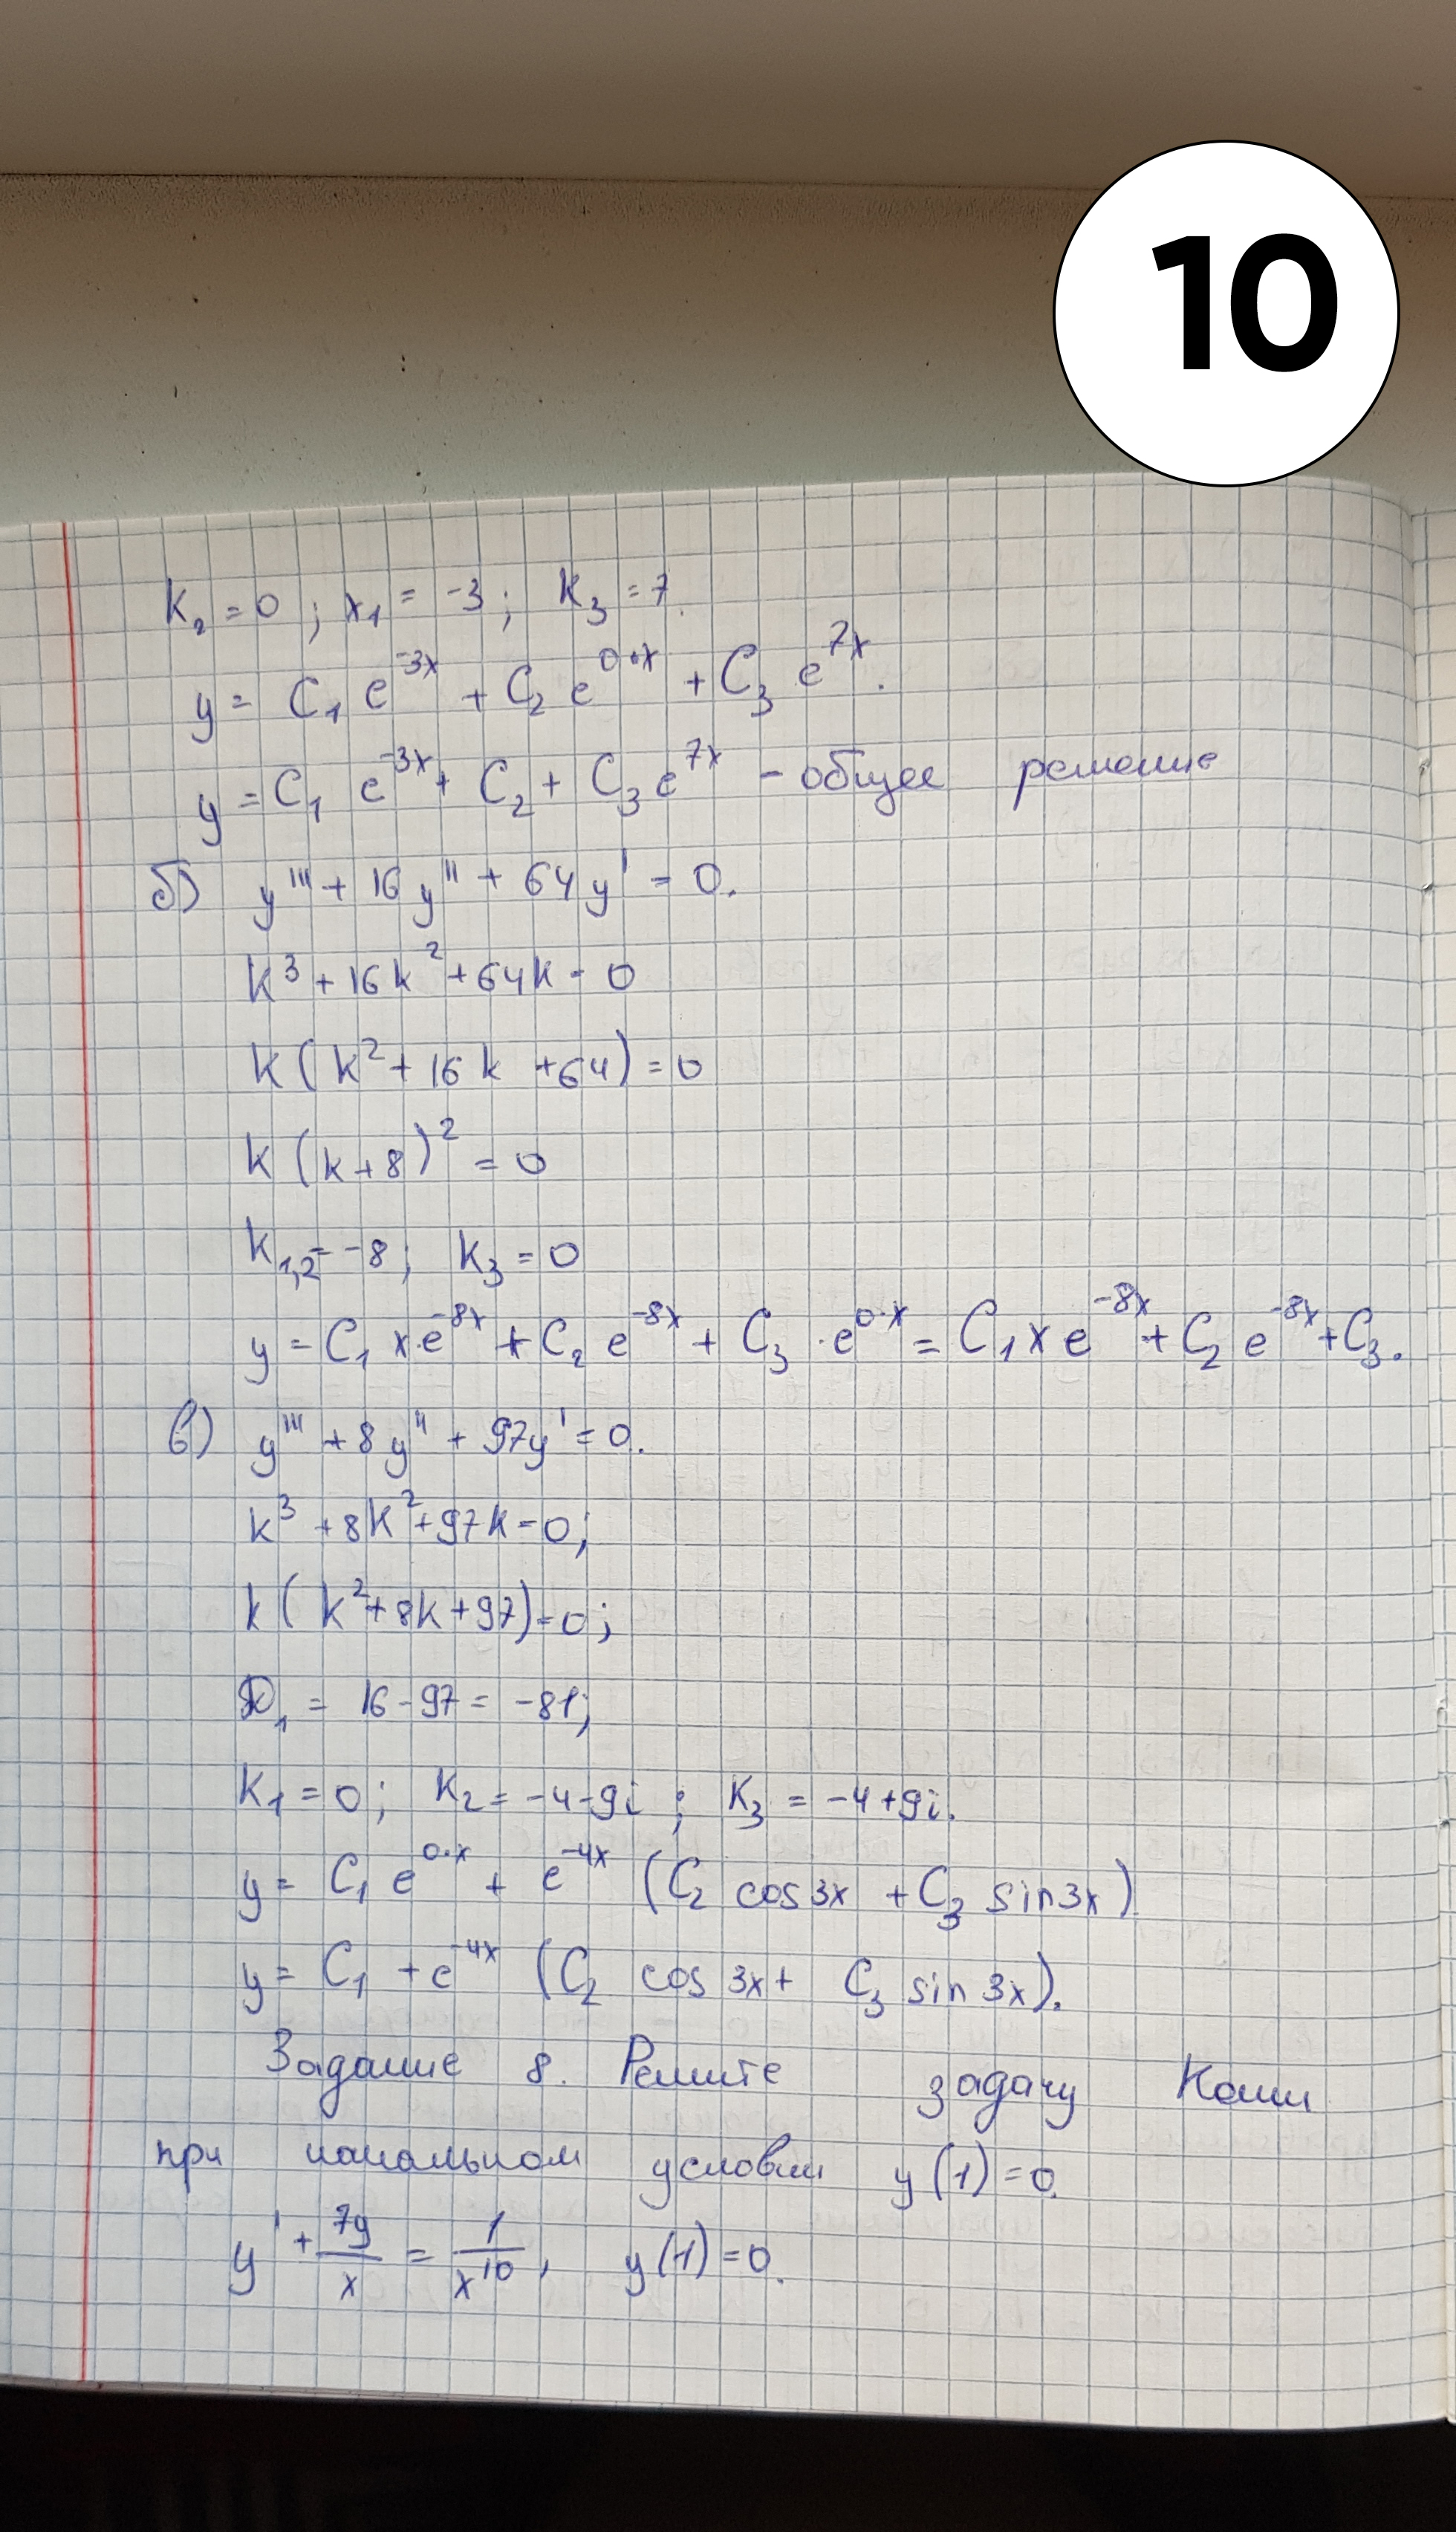 10
k₂ = 0 ; x₁ = -3 ; k₃ = 7.
y = C₁ e^{-3x} + C₂ e^{0·x} + C₃ e^{7x}.
y = C₁ e^{-3x} + C₂ + C₃ e^{7x} - общее решение
б) y''' + 16y'' + 64y' = 0.
k³ + 16k² + 64k = 0
k(k² + 16k + 64) = 0
k(k+8)² = 0
k₁,₂ = -8; k₃ = 0
y = C₁ x·e^{-8x} + C₂ e^{-8x} + C₃ · e^{0·x} = C₁ x e^{-8x} + C₂ e^{-8x} + C₃.
в) y''' + 8y'' + 97y' = 0.
k³ + 8k² + 97k = 0;
k(k² + 8k + 97) = 0;
D₁ = 16 - 97 = -81;
k₁ = 0; k₂ = -4 - 9i ; k₃ = -4 + 9i.
y = C₁ e^{0·x} + e^{-4x} (C₂ cos 3x + C₃ sin 3x)
y = C₁ + e^{-4x} (C₂ cos 3x + C₃ sin 3x).
Задание 8. Решите задачу Коши
при начальном условии y(1) = 0.
y' + 7y/x = 1/x¹⁰, y(1) = 0.